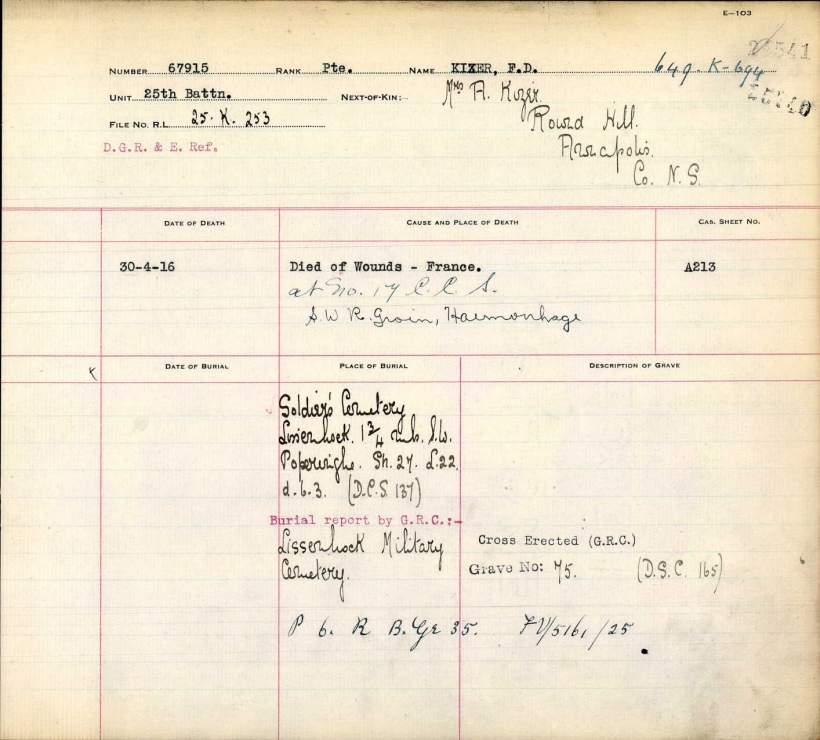 E-103
649-K-694
NUMBER 67915 RANK Pte. NAME KIZER, F.D.
UNIT 25th Battn. NEXT-OF-KIN:- Mrs A. Kizer.
Round Hill.
Annapolis.
Co. N.S.
FILE No. R.L. 25-K. 253
D.G.R. & E. Ref.
DATE OF DEATH CAUSE AND PLACE OF DEATH CAS. SHEET NO.
30-4-16 Died of Wounds - France. A213
at No. 17 C.C.S.
S.W R. Groin, Haemorrhage
DATE OF BURIAL PLACE OF BURIAL DESCRIPTION OF GRAVE
Soldier's Cemetery
Lissenhoek. 1 3/4 mls. S.W.
Poperinghe. Sh. 27. L.22.
d.6.3. (D.C.S. 137)
Burial report by G.R.C.:-
Lissenhock Military
Cemetery.
Cross Erected (G.R.C.)
Grave No: 75. (D.S.C. 165)
P 6. R B. Gr 35.